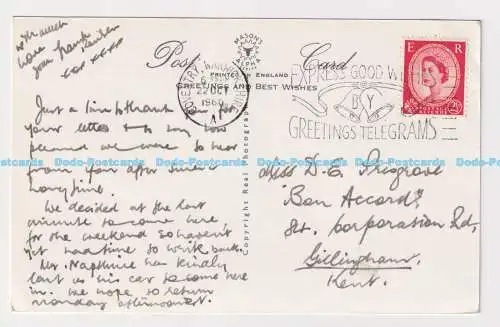 with much
love
Post Card
MASON'S
PRINTED IN ENGLAND
GREETINGS AND BEST WISHES
Copyright Real Photograph
COVENTRY
22 OCT
1960
EXPRESS GOOD WISHES
BY
GREETINGS TELEGRAMS
E R
Just a line to thank you for
your letter & to say how
pleased we were to hear
from you after such a
long time.
We decided at the last
minute to come here,
for the weekend so haven't
yet had time to write back.
Mr. has kindly
lent us his car to come here
in. We hope to return
Monday afternoon.
Miss D. E.
"Bon Accord",
Corporation Rd,
Gillingham,
Kent.
Dodo-Postcards Dodo-Postcards Dodo-Postcards Dodo-Postcards